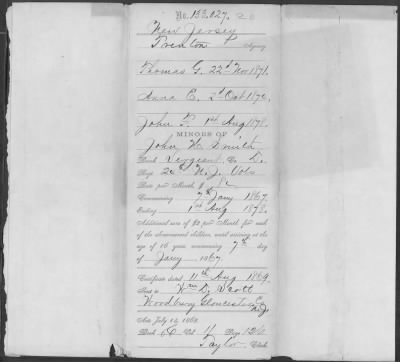 No. 153,027. 20
New Jersey
Trenton Agency
Thomas G. 22d Nov 1871.
Anna E. 2d Oct 1876.
John F. 1st Aug 1878.
MINORS OF
John W. Smith
Rank Sergeant, Co. D.
Regt 24th N. J. Vols
Rate per Month, $
Commencing 7th Jany 1867.
Ending 1st Aug 1878.
Additional sum of $2 per Month for each
of the abovenamed children, until arriving at the
age of 16 years commencing 7th day
of Jany 1867
Certificate dated 11th Aug 1869.
Sent to Wm D. Scott
Woodbury Gloucester Co
N.J.
Act July 14, 1862.
Book Vol Page
Taylor Clerk